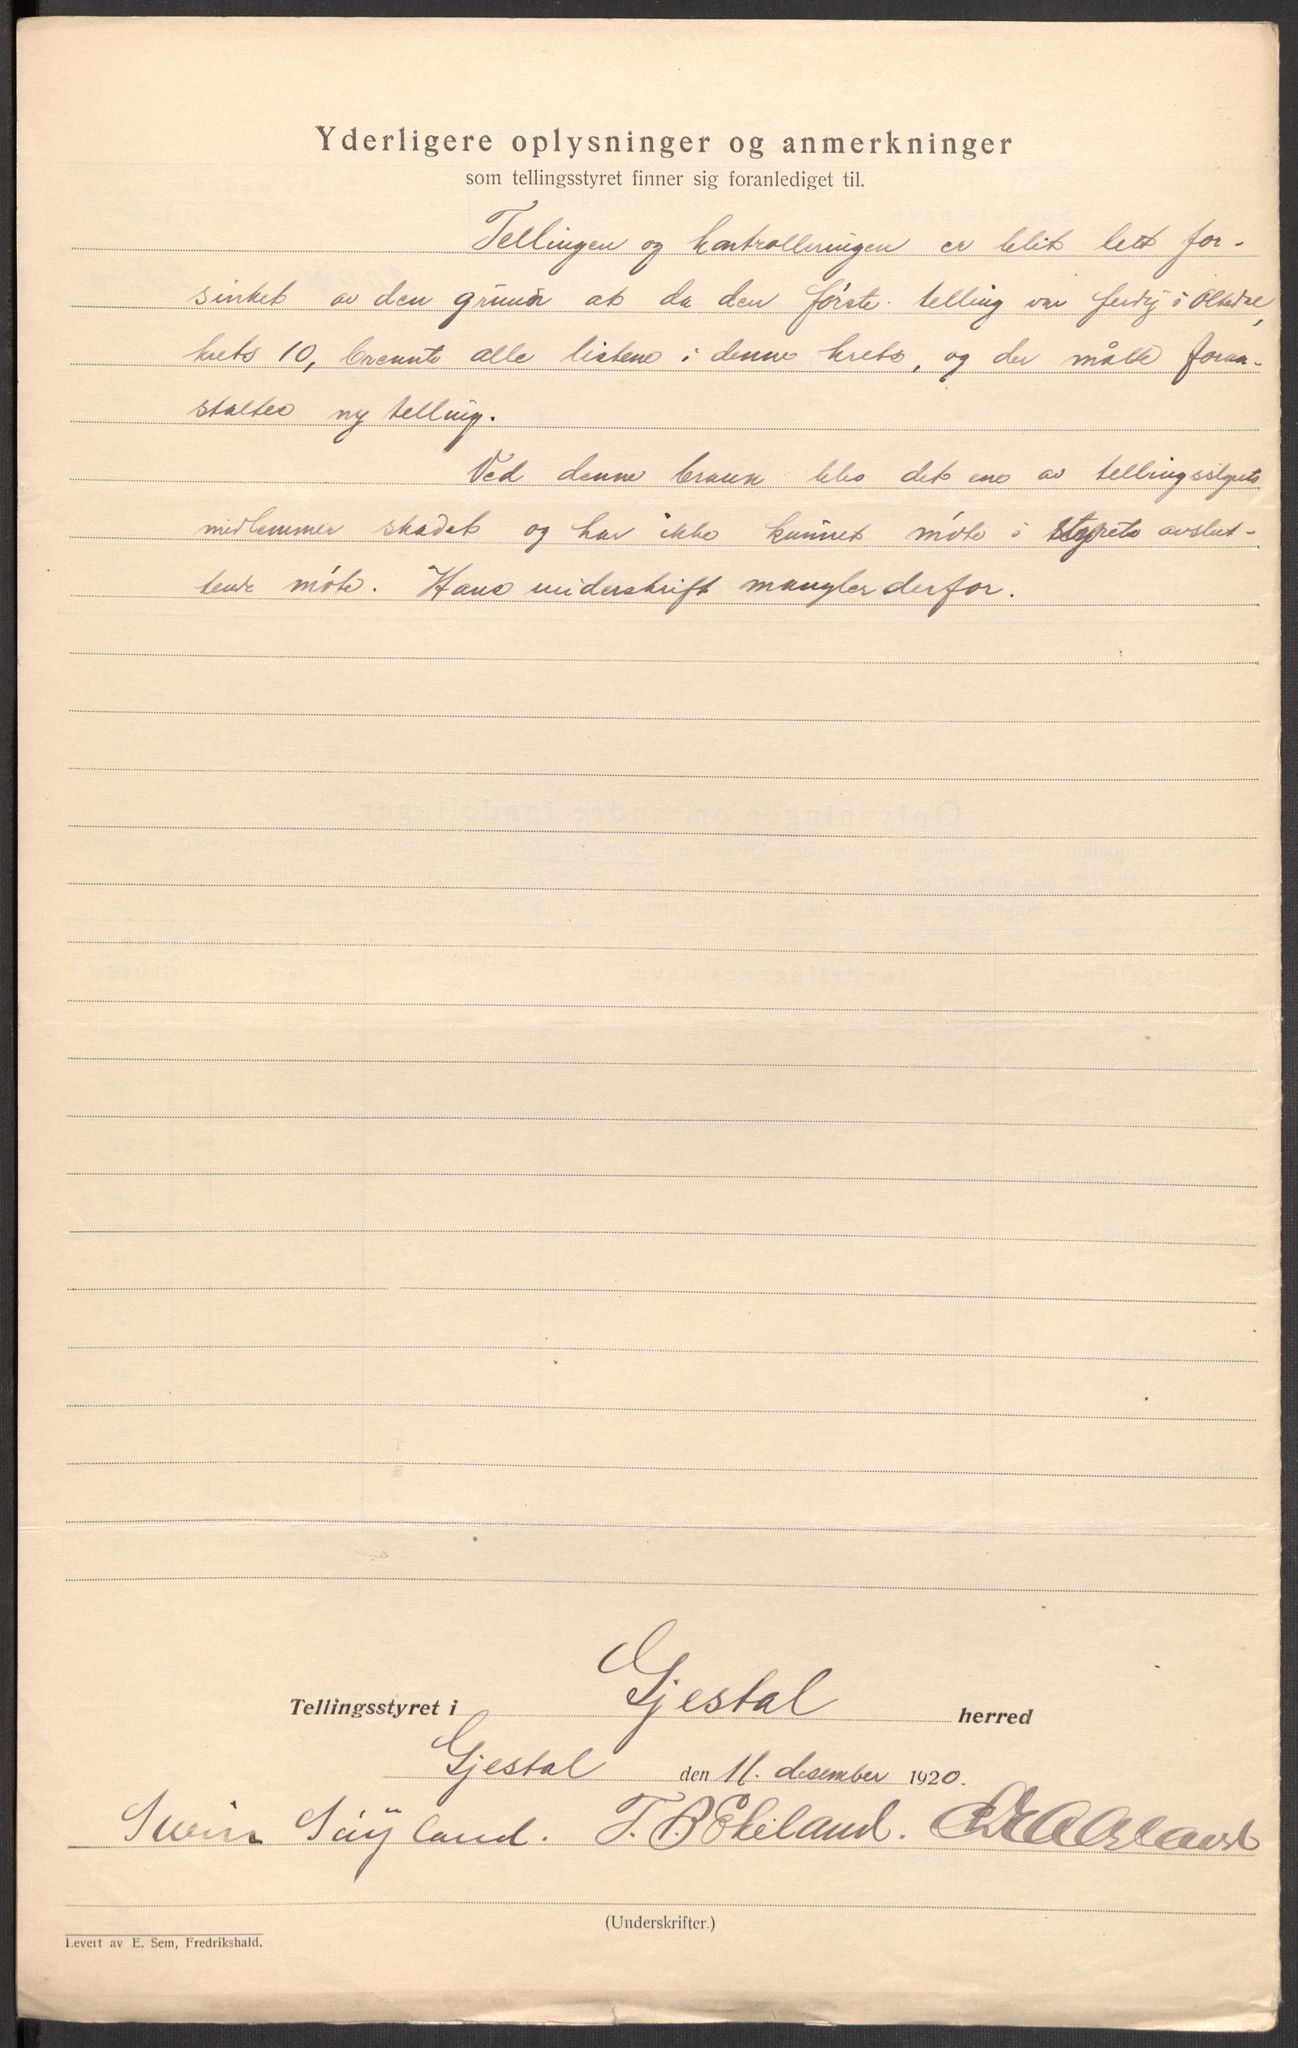 Yderligere oplysninger og anmerkninger
som tellingsstyret finner sig foranlediget til.
Tellingen og kontrolleringen er blit litt for-
sinket av den grunn at da den første telling var ferdig i Oltedal,
krets 10, brennte alle listene i denne krets, og der måtte foran-
staltes ny telling.
Ved denne brann blev det ene av tellingsstyrets
medlemmer skadet og har ikke kunnet møte i styrets avslut-
tende møte. Hans underskrift mangler derfor.
Tellingsstyret i Gjestal herred
Gjestal den 11. desember 1920.
Svein Søyland. T. B. Ekeland.
(Underskrifter.)
Levert av E. Sem, Fredrikshald.